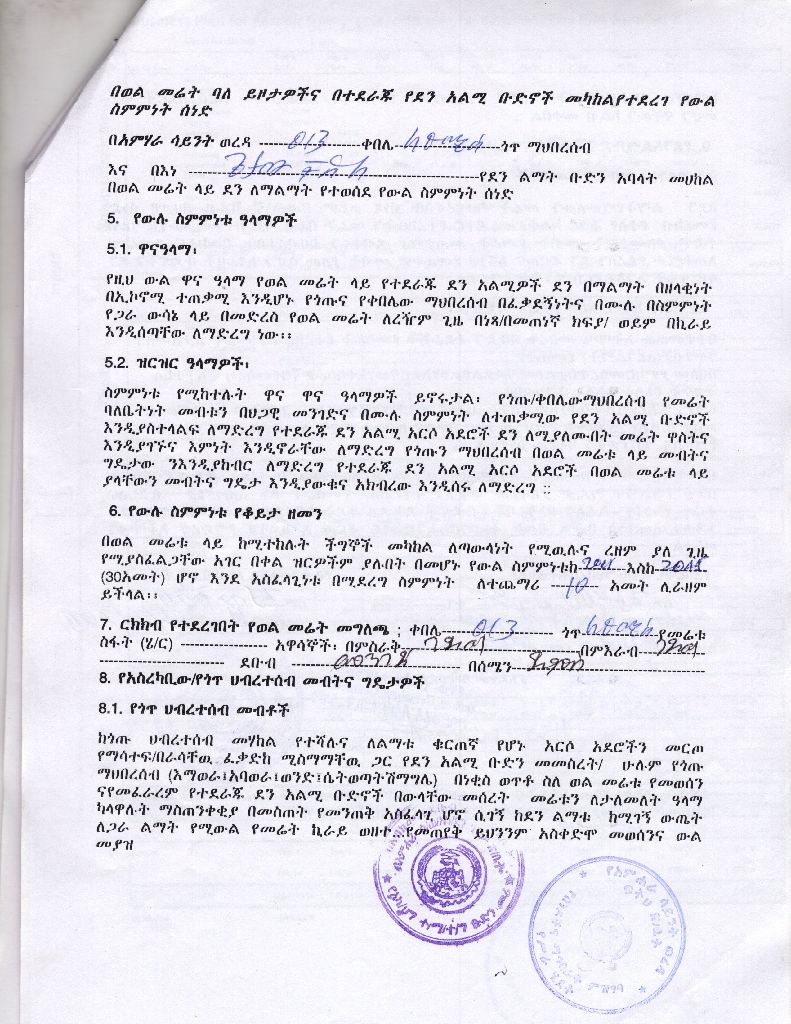 በወል መሬት ባለ ይዞታዎችና በተደራጁ የደን አልሚ ቡድኖች መካከልየተደረገ የውል
ስምምነት ሰነድ
በአምሃራ ሳይንት ወረዳ ------------------013----------ቀበሌ-------------ጎጥ ማህበረሰብ
እና በእነ -----------------------------------------------የደን ልማት ቡድን አባላት መሀከል
በወል መሬት ላይ ደን ለማልማት የተወሰደ የውል ስምምነት ሰነድ
5. የውሉ ስምምነቱ ዓላማዎች
5.1. ዋናዓላማ፡
የዚህ ውል ዋና ዓላማ የወል መሬት ላይ የተደራጁ ደን አልሚዎች ደን በማልማት በዘላቂነት
በኢኮኖሚ ተጠቃሚ እንዲሆኑ የጎጡና የቀበሌው ማህበረሰብ በፈቃደኝነትና በሙሉ በስምምነት
የጋራ ውሳኔ ላይ በመድረስ የወል መሬት ለረዥም ጊዜ በነጻ/በመጠነኛ ክፍያ/ ወይም በኪራይ
እንዲሰጣቸው ለማድረግ ነው፡፡
5.2. ዝርዝር ዓላማዎች፡
ስምምነቱ የሚከተሉት ዋና ዋና ዓላማዎች ይኖሩታል፡ የጎጡ/ቀበሌውማህበረሰብ የመሬት
ባለቤትነት መብቱን በህጋዊ መንገድና በሙሉ ስምምነት ለተጠቃሚው የደን አልሚ ቡድኖች
እንዲያስተላልፍ ለማድረግ የተደራጁ ደን አልሚ አርሶ አደሮች ደን ለሚያለሙበት መሬት ዋስትና
እንዲያገኙና እምነት እንዲኖራቸው ለማድረግ የጎጡን ማህበረሰብ በወል መሬቱ ላይ መብትና
ግዴታው ንእንዲያከብር ለማድረግ የተደራጁ ደን አልሚ አርሶ አደሮች በወል መሬቱ ላይ
ያላቸውን መብትና ግዴታ እንዲያውቁና አክብረው እንዲሰሩ ለማድረግ ::
6. የውሉ ስምምነቱ የቆይታ ዘመን
በወል መሬቱ ላይ ከሚተከሉት ችግኞች መካከል ለጣውላነት የሚዉሉና ረዘም ያለ ጊዜ
የሚያስፈልጋቸው አገር በቀል ዝርዎችም ያሉበት በመሆኑ የውል ስምምነቱከ-------እስከ-------
(30አመት) ሆኖ እንደ አስፈላጊነቱ በሚደረግ ስምምነት ለተጨማሪ ---10--- አመት ሊራዘም
ይችላል፡፡
7. ርክክብ የተደረገበት የወል መሬት መግለጫ ; ቀበሌ------013------------ ጎጥ ---------የመሬቱ
ስፋት (ሄ/ር) ------------------ አዋሳኞች፡ በምስራቅ------------------------በምእራብ----------
-------------------------- ደቡብ ---------------------------------- በሰሜን-----------------------------------
8. የአስረካቢው/የጎጥ ሀብረተሰብ መብትና ግዴታዎች
8.1. የጎጥ ሀብረተሰብ መብቶች
ከጎጡ ሀብረተሰብ መሃከል የተሻሉና ለልማቱ ቁርጠኛ የሆኑ አርሶ አደሮችን መርጦ
የማሳተፍ/በራሳቸዉ ፈቃድከ ሚስማማቸዉ ጋር የደን አልሚ ቡድን መመስረት/ ሁሉም የጎጡ
ማህበረሰብ (እማወራ፤አባወራ፤ወንድ፤ሴትወጣትሽማግሌ) በነቂስ ወጥቶ ስለ ወል መሬቱ የመወሰን
ናየመፈራረም የተደራጁ ደን አልሚ ቡድኖች በውላቸው መሰረት መሬቱን ለታለመለት ዓላማ
ካላዋሉት ማስጠንቀቂያ በመስጠት የመንጠቅ አስፈላጊ ሆኖ ሲገኝ ከደን ልማቱ ከሚገኝ ውጤት
ለጋራ ልማት የሚውል የመሬት ኪራይ ወዘተ...የመጠየቅ ይህንንም አስቀድሞ መወሰንና ውል
መያዝ